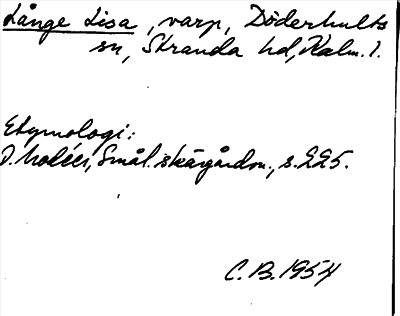 Långe Lisa, varp, Döderhults
sn, Stranda hd, Kalm. l.
Etymologi:
D. Modéer, Smål. skärgårdsn., s. 225.
C. B. 1954